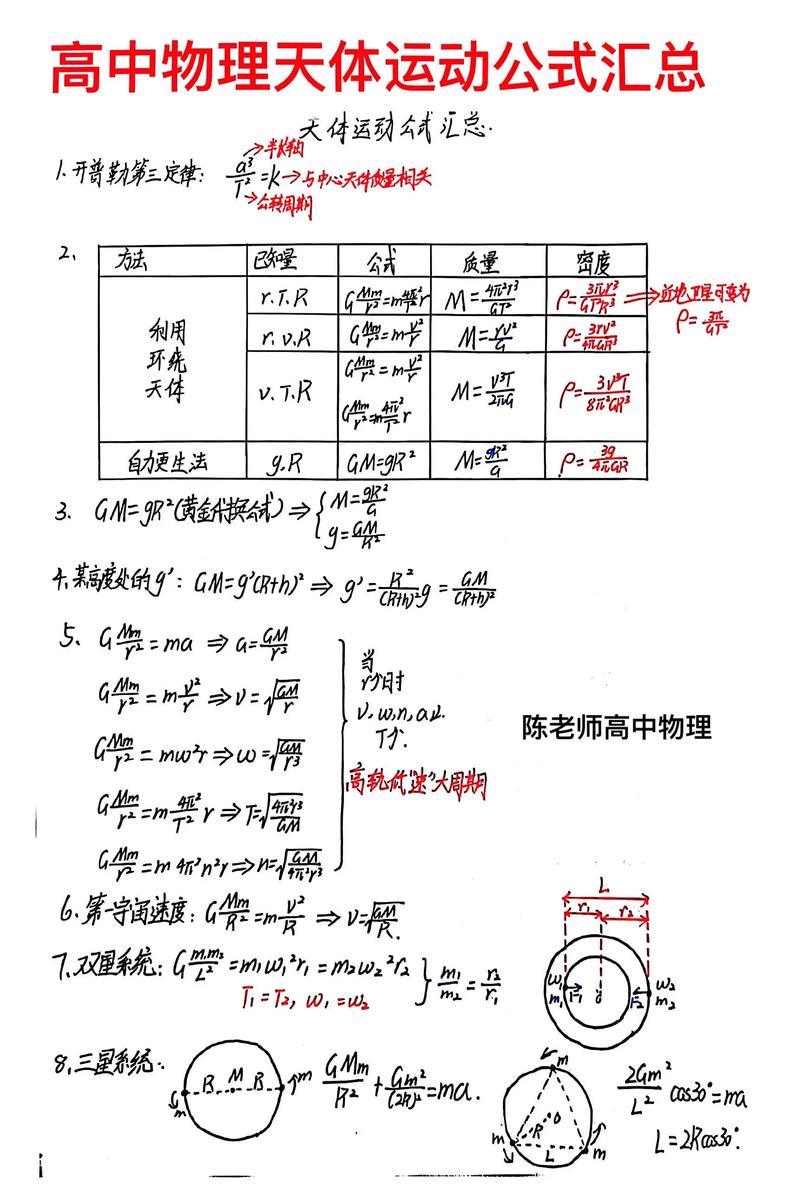 高中物理天体运动公式汇总
天体运动公式汇总.
1.开普勒第三定律: a³/T²=K →半长轴 →与中心天体质量相关 →公转周期
2、
方法 已知量 公式 质量 密度
利用环绕天体 r.T.R GMm/r²=m4π²/T² r M=4π²r³/GT² ρ=3πr³/GT²R³ ⇒近地卫星可变为 ρ=3π/GT²
r.v.R GMm/r²=mv²/r M=rv²/G ρ=3rv²/4πGR³
v.T.R GMm/r²=mv²/r GMm/r²=m4π²/T² r M=v³T/2πG ρ=3v³T/8π²GR³
自力更生法 g.R GM=gR² M=gR²/G ρ=3g/4πGR
3、GM=gR²(黄金代换公式) ⇒ { M=gR²/G g=GM/R²
4.某高度处的g': GM=g'(R+h)² ⇒ g'=R²/(R+h)² g = GM/(R+h)²
5、GMm/r²=ma ⇒ a=GM/r²
GMm/r²=mv²/r ⇒ v=√GM/r
GMm/r²=mω²r ⇒ ω=√GM/r³
GMm/r²=m4π²/T² r ⇒ T=√4π²r³/GM
GMm/r²=m4π²n²r ⇒ n=√GM/4π²r³
当
r↑时
v,w,n,a↓.
T↑.
高轨低"速"大周期
陈老师高中物理
6.第一宇宙速度: GMm/R²=mv²/R ⇒ v=√GM/R.
7.双星系统: Gm₁m₂/L²=m₁ω₁²r₁=m₂ω₂²r₂ } m₁/m₂=r₂/r₁
T₁=T₂, ω₁=ω₂
L
r₁ r₂
ω₁ ω₂
m₁ F₁ o F₂ m₂
8.三星系统:
R M R m
m
GMm/R²+Gm²/(2R)²=ma.
m
R O
m L m
2Gm²/L² cos30°=ma
L=2Rcos30°.